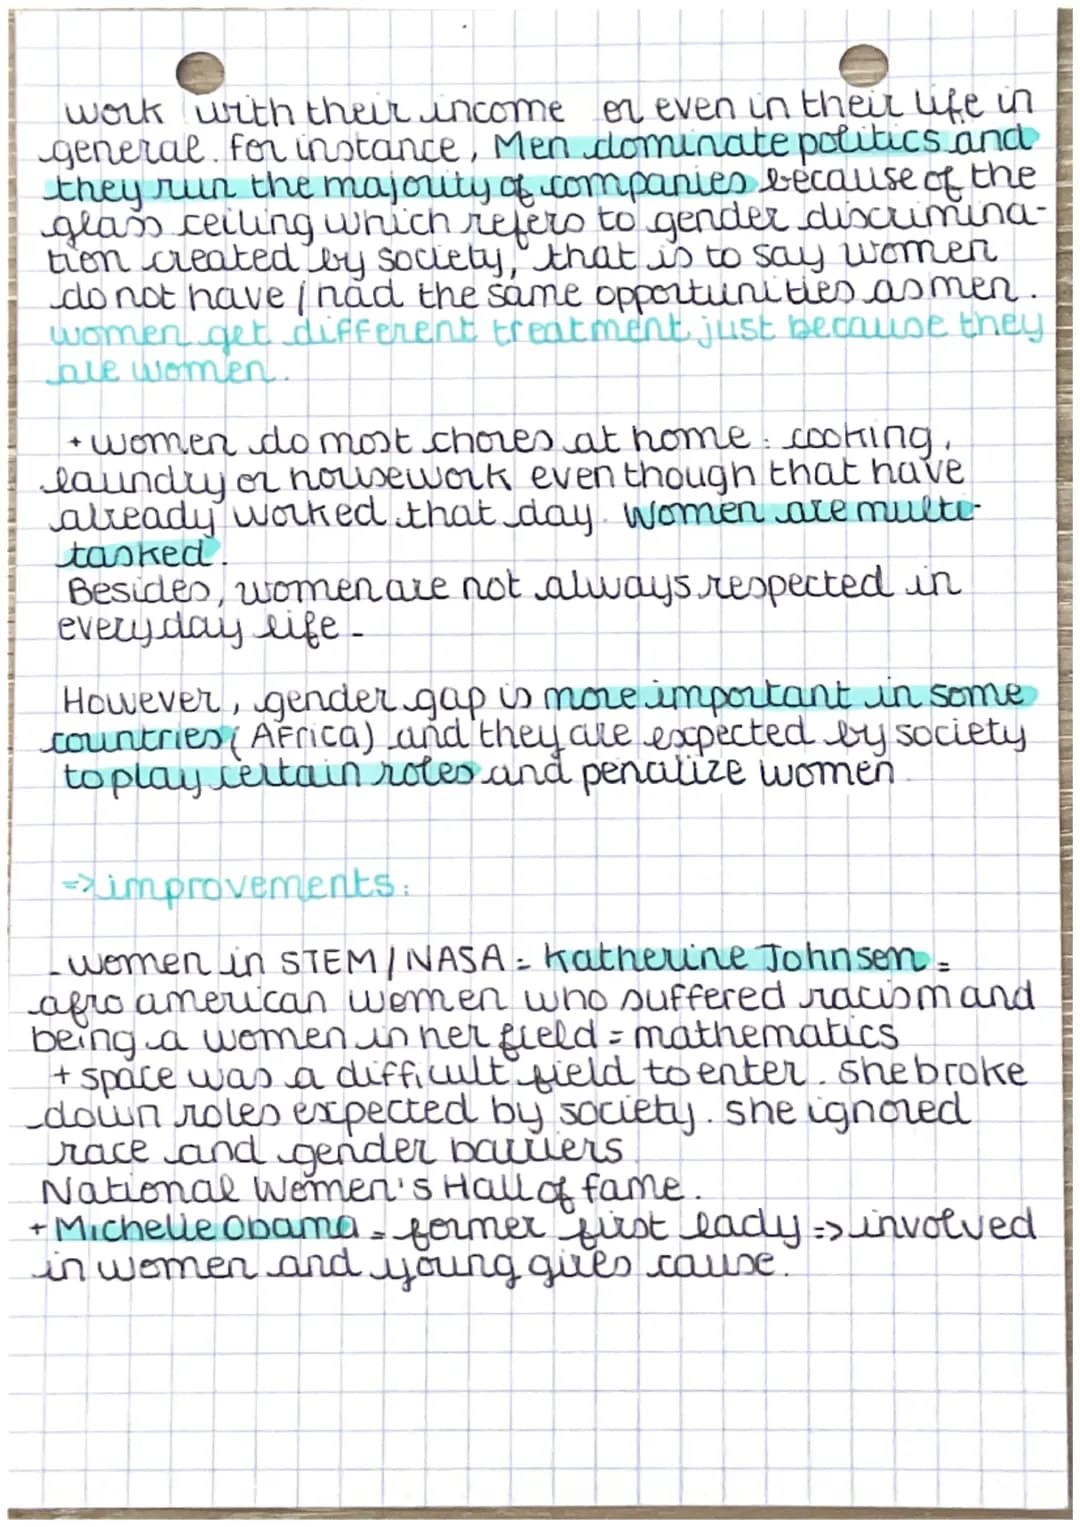 work with their income or even in their life in
general. for instance, Men dominate politics and
they run the majority of companies because of the
glass ceiling which refers to gender discrimina-
tion created by society, that is to say women
do not have / had the same opportunities as men.
women get different treatment just because they
are women.
+ women do most chores at home : cooking,
laundry or housework even though that have
already worked that day. Women are multi-
tasked.
Besides, women are not always respected in
everyday life -
However, gender gap is more important in some
countries (Africa) and they are expected by society
to play certain roles and penalize women
=> improvements:
- women in STEM / NASA = Katherine Johnson =
afro american women who suffered racism and
being a women in her field = mathematics
+ space was a difficult field to enter. she broke
down roles expected by society. she ignored
race and gender barriers
National Women's Hall of fame.
+ Michelle Obama = former first lady => involved
in women and young girls cause.